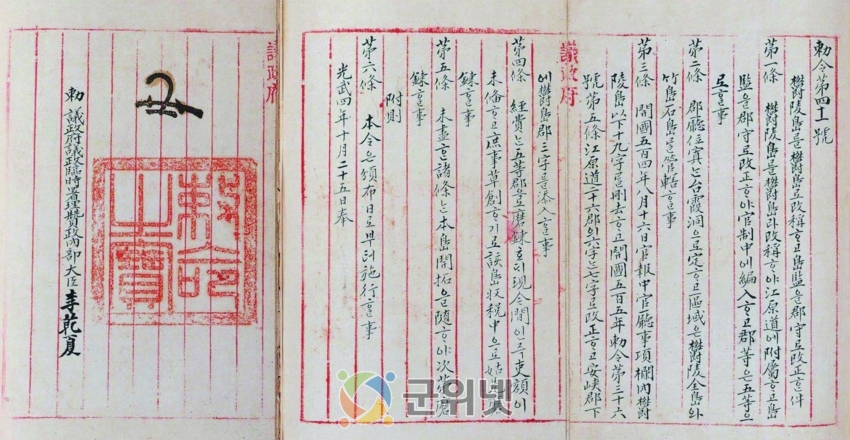 勅令第四十一號
欝陵島를欝島로改稱ᄒᆞ고島監을郡守로改正ᄒᆞᆫ件
第一條 欝陵島를欝島라改稱ᄒᆞ야江原道에附屬ᄒᆞ고島
監을郡守로改正ᄒᆞ야官制中에編入ᄒᆞ고郡等은五等으
로ᄒᆞᆯ事
第二條 郡廳位寘는台霞洞으로定ᄒᆞ고區域은欝陵全島와
竹島石島를管轄ᄒᆞᆯ事
第三條 開國五百四年八月十六日官報中官廳事項欄內欝
陵島以下十九字를刪去ᄒᆞ고開國五百五年勅令第三十六
號第五條江原道二十六郡의六字는七字로改正ᄒᆞ고安峽郡下
議政府
에欝島郡三字를添入ᄒᆞᆯ事
第四條 經費는五等郡으로磨鍊호ᄃᆡ現今間인즉吏額이
未備ᄒᆞ고庶事草創ᄒᆞ기로該島收稅中으로姑先磨
鍊ᄒᆞᆯ事
第五條 未盡ᄒᆞᆫ諸條는本島開拓을隨ᄒᆞ야次第磨
鍊ᄒᆞᆯ事
附則
第六條 本令은頒布日로부터施行ᄒᆞᆯ事
光武四年十月二十五日奉
議政府
勅命之寶
勅 議政府議政臨時署理贊政內部大臣 李乾夏
군위넷